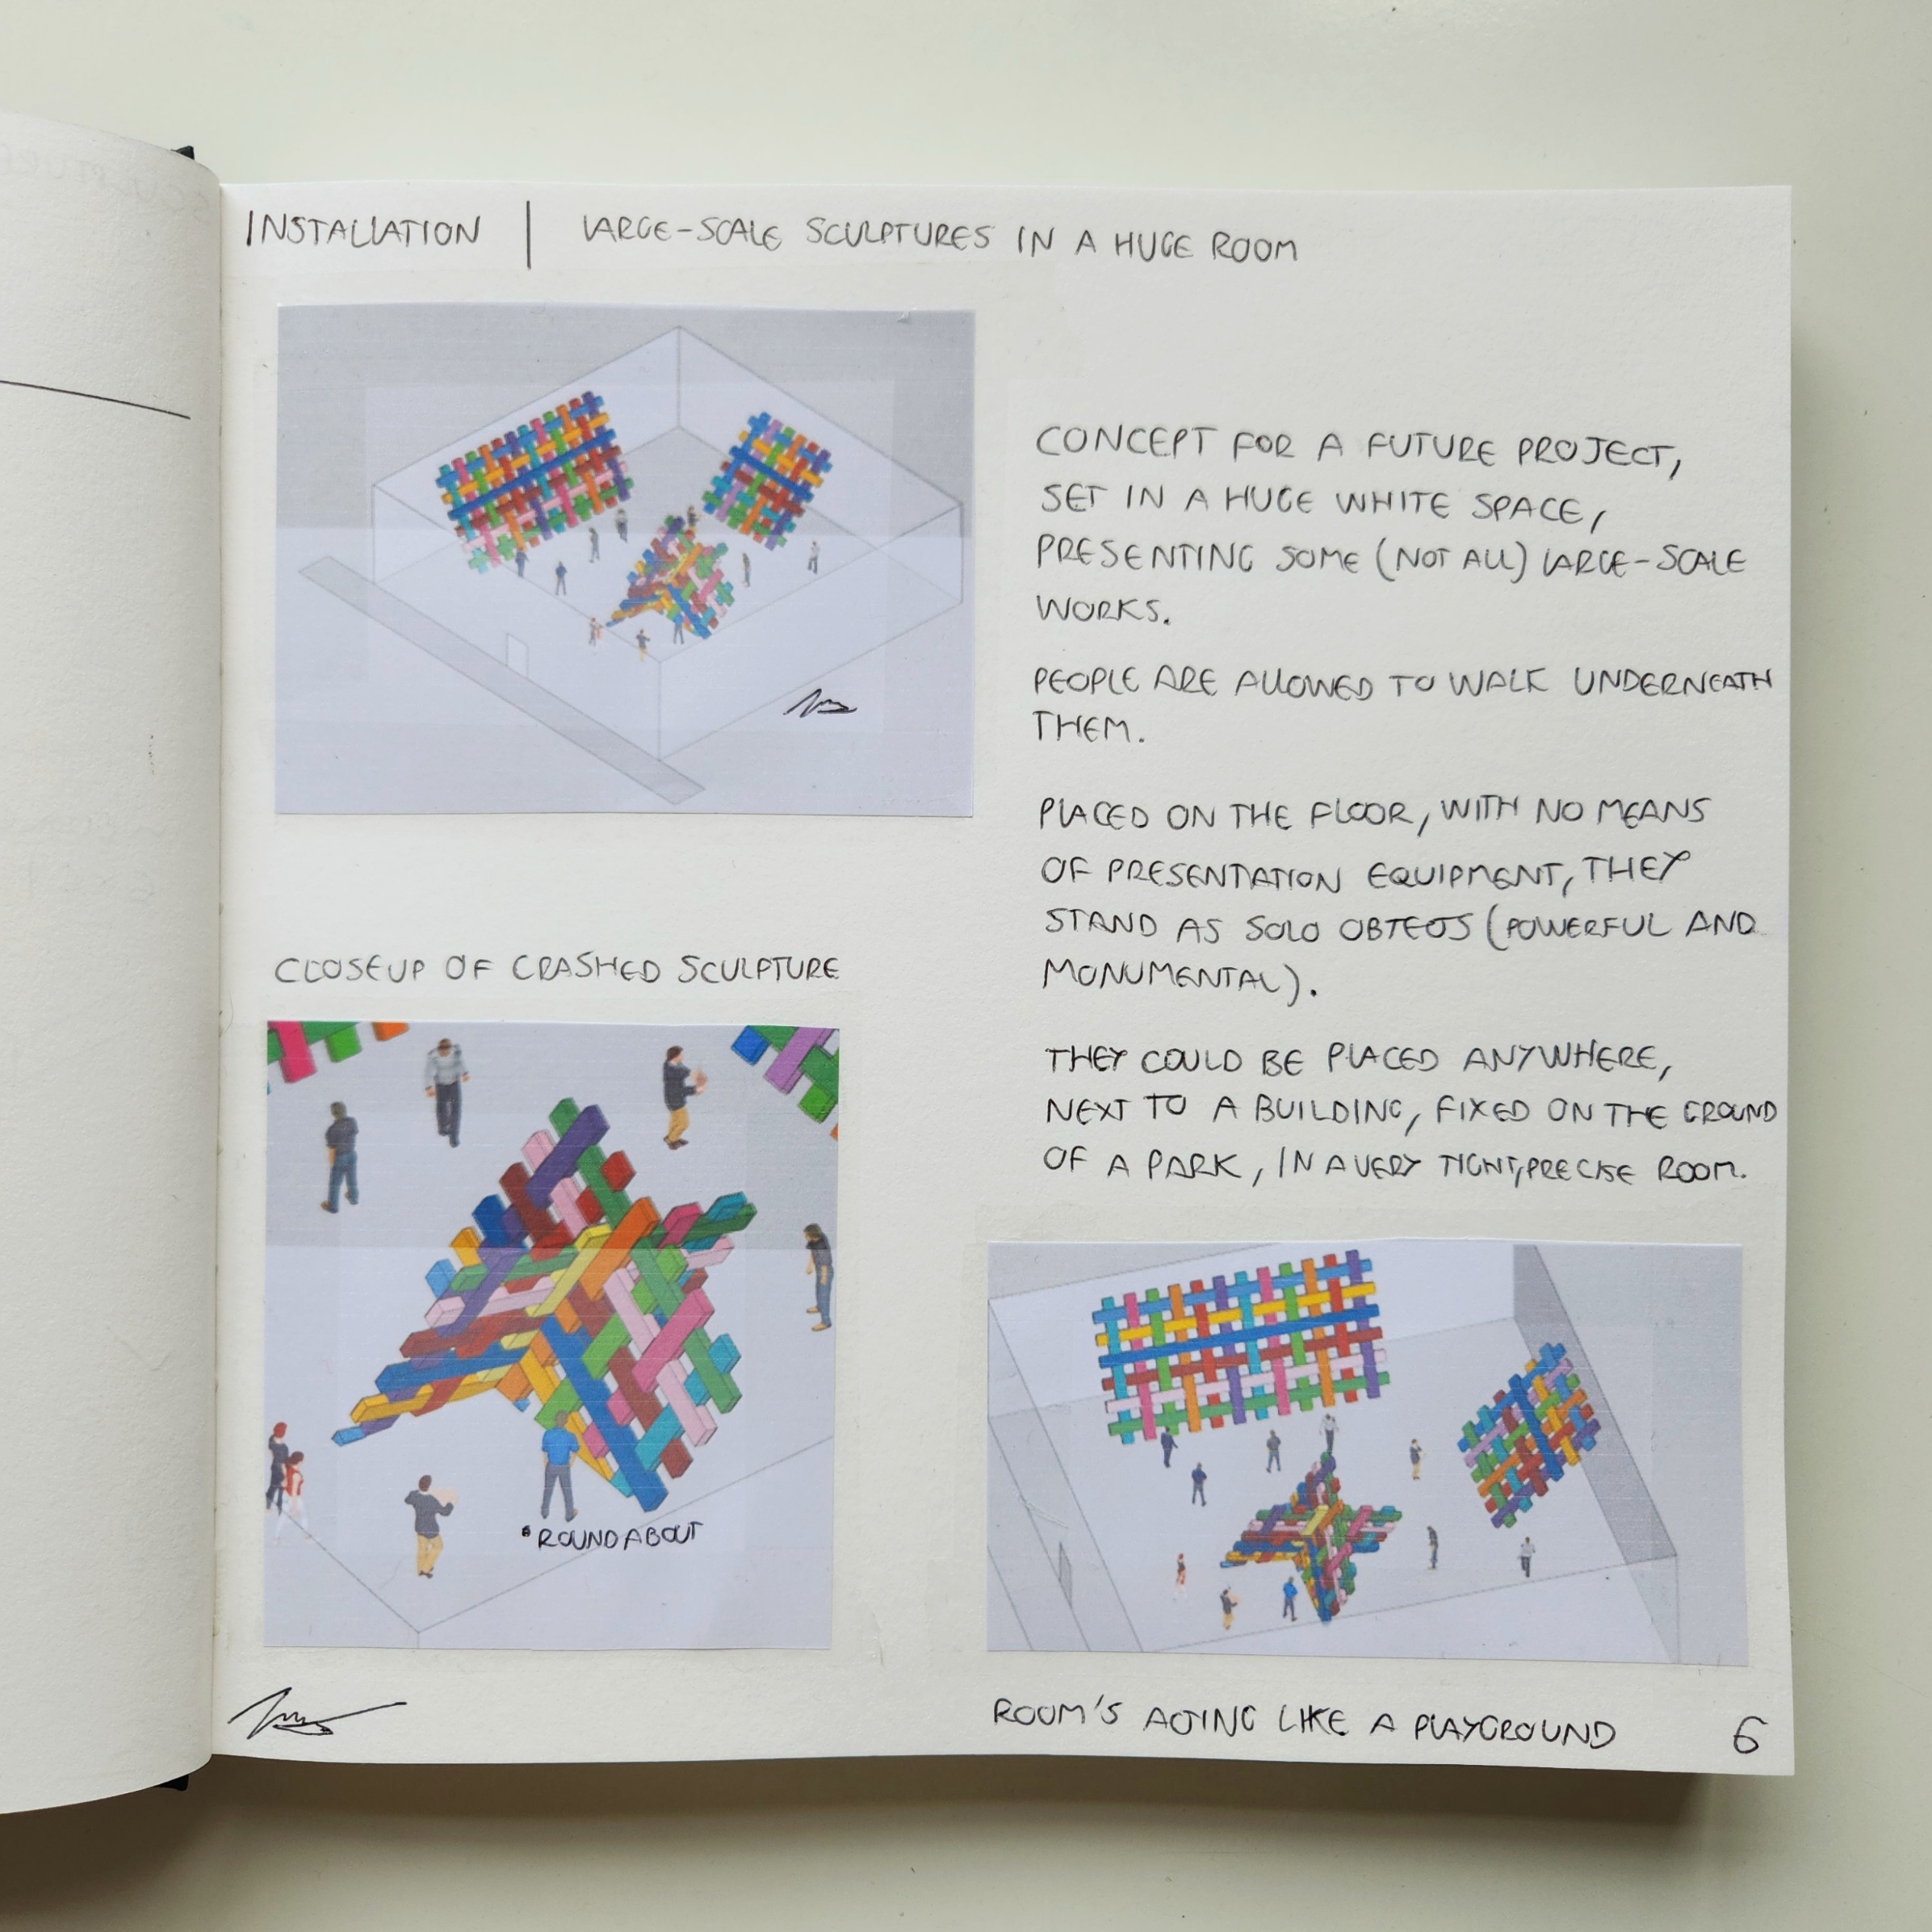 INSTALLATION | LARGE-SCALE SCULPTURES IN A HUGE ROOM
CONCEPT FOR A FUTURE PROJECT,
SET IN A HUGE WHITE SPACE,
PRESENTING SOME (NOT ALL) LARGE-SCALE
WORKS.
PEOPLE ARE ALLOWED TO WALK UNDERNEATH
THEM.
PLACED ON THE FLOOR, WITH NO MEANS
OF PRESENTATION EQUIPMENT, THEY
STAND AS SOLO OBJECTS (POWERFUL AND
MONUMENTAL).
THEY COULD BE PLACED ANYWHERE,
NEXT TO A BUILDING, FIXED ON THE GROUND
OF A PARK, IN A VERY TIGHT, PRECISE ROOM.
CLOSEUP OF CRASHED SCULPTURE
*ROUNDABOUT
ROOM'S ACTING LIKE A PLAYGROUND
6